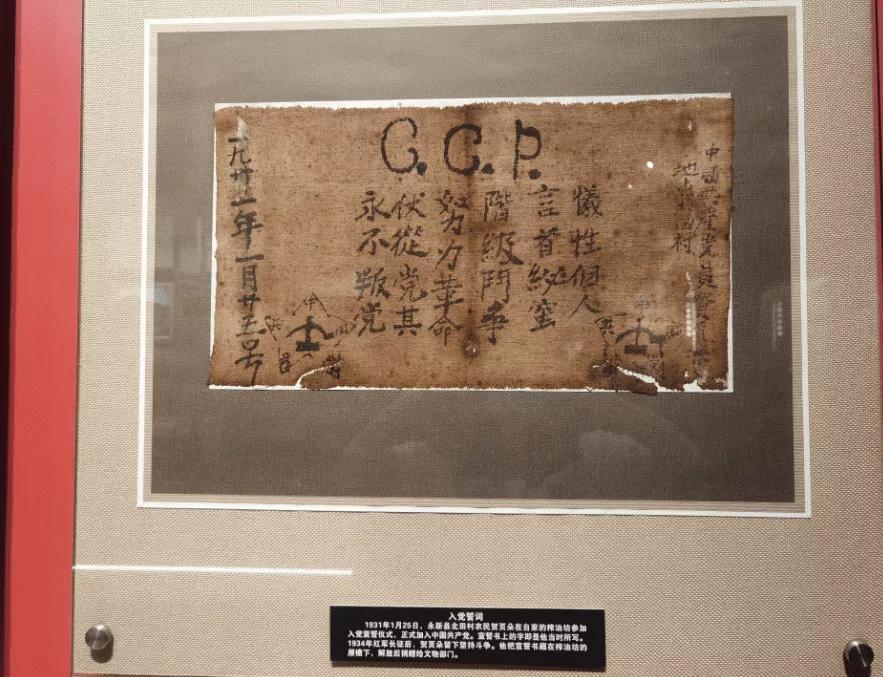 C.C.P.
中國共產党員
地点 村
犧牲個人
言首秘蜜
階級鬥争
努力革命
伏從党其
永不叛党
一九卅一年一月廿五号
入党誓词
1931年1月25日，永新县北田村农民贺页朵在自家的榨油坊参加
入党宣誓仪式，正式加入中国共产党。宣誓书上的字即是他当时所写。
1934年红军长征后，贺页朵留下坚持斗争。他把宣誓书藏在榨油坊的
屋檐下，解放后捐赠给文物部门。